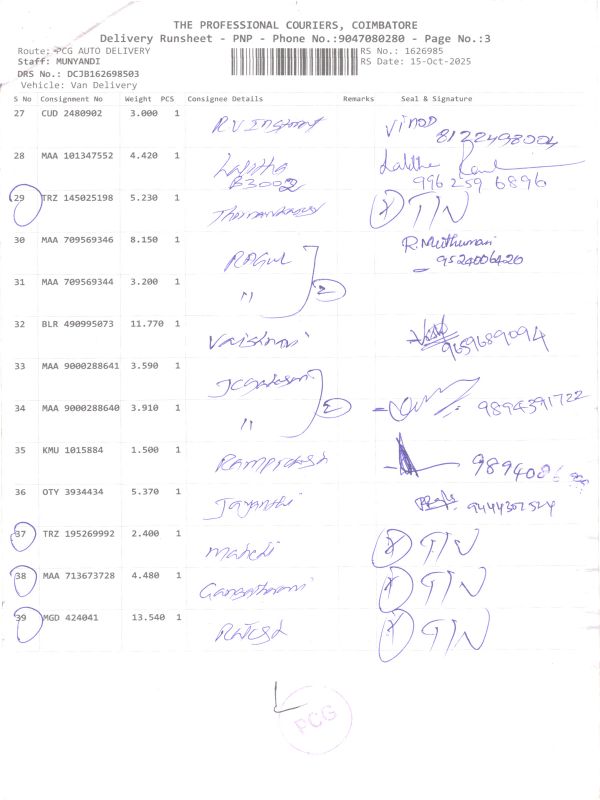 THE PROFESSIONAL COURIERS, COIMBATORE
Delivery Runsheet - PNP - Phone No.:9047080280 - Page No.:3
Route: PCG AUTO DELIVERY
RS No.: 1626985
Staff: MUNYANDI
RS Date: 15-Oct-2025
DRS No.: DCJB162698503
Vehicle: Van Delivery
S No Consignment No Weight PCS Consignee Details Remarks Seal & Signature
27 CUD 2480902 3.000 1 Vinod
8122498004
28 MAA 101347552 4.420 1 Lalitha Lalitha
B3002 996 259 6896
29 TRZ 145025198 5.230 1 TIN
30 MAA 709569346 8.150 1 R. Muthumari
9524006420
31 MAA 709569344 3.200 1 " 2
32 BLR 490995073 11.770 1 Vaishnavi
9659689094
33 MAA 9000288641 3.590 1
34 MAA 9000288640 3.910 1 " 2 9894391722
35 KMU 1015884 1.500 1 Ramprakash 9894086
36 OTY 3934434 5.370 1 Jayanthi 9444302524
37 TRZ 195269992 2.400 1 TIN
38 MAA 713673728 4.480 1 TIN
39 MGD 424041 13.540 1 TIN
PCG